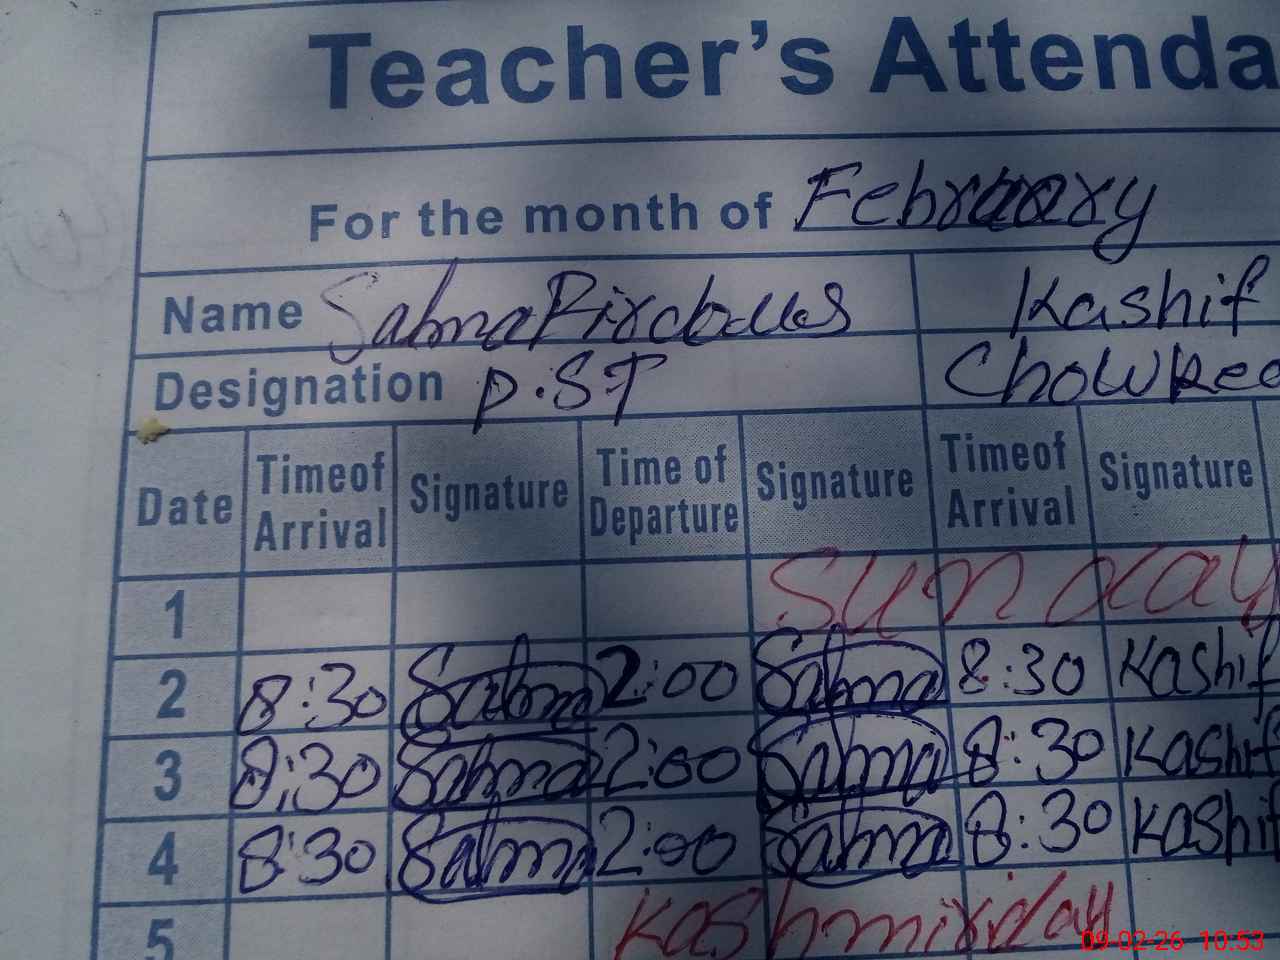 Teacher's Attenda
For the month of February
Name Salma Firdous Kashif
Designation P.S.T Chowked
Date Timeof Arrival Signature Time of Departure Signature Timeof Arrival Signature
1 Sunday
2 8:30 Salma 2:00 Salma 8:30 Kashif
3 8:30 Salma 2:00 Salma 8:30 Kashif
4 8:30 Salma 2:00 Salma 8:30 Kashif
5 Kashmir day
09-02-26 10:53